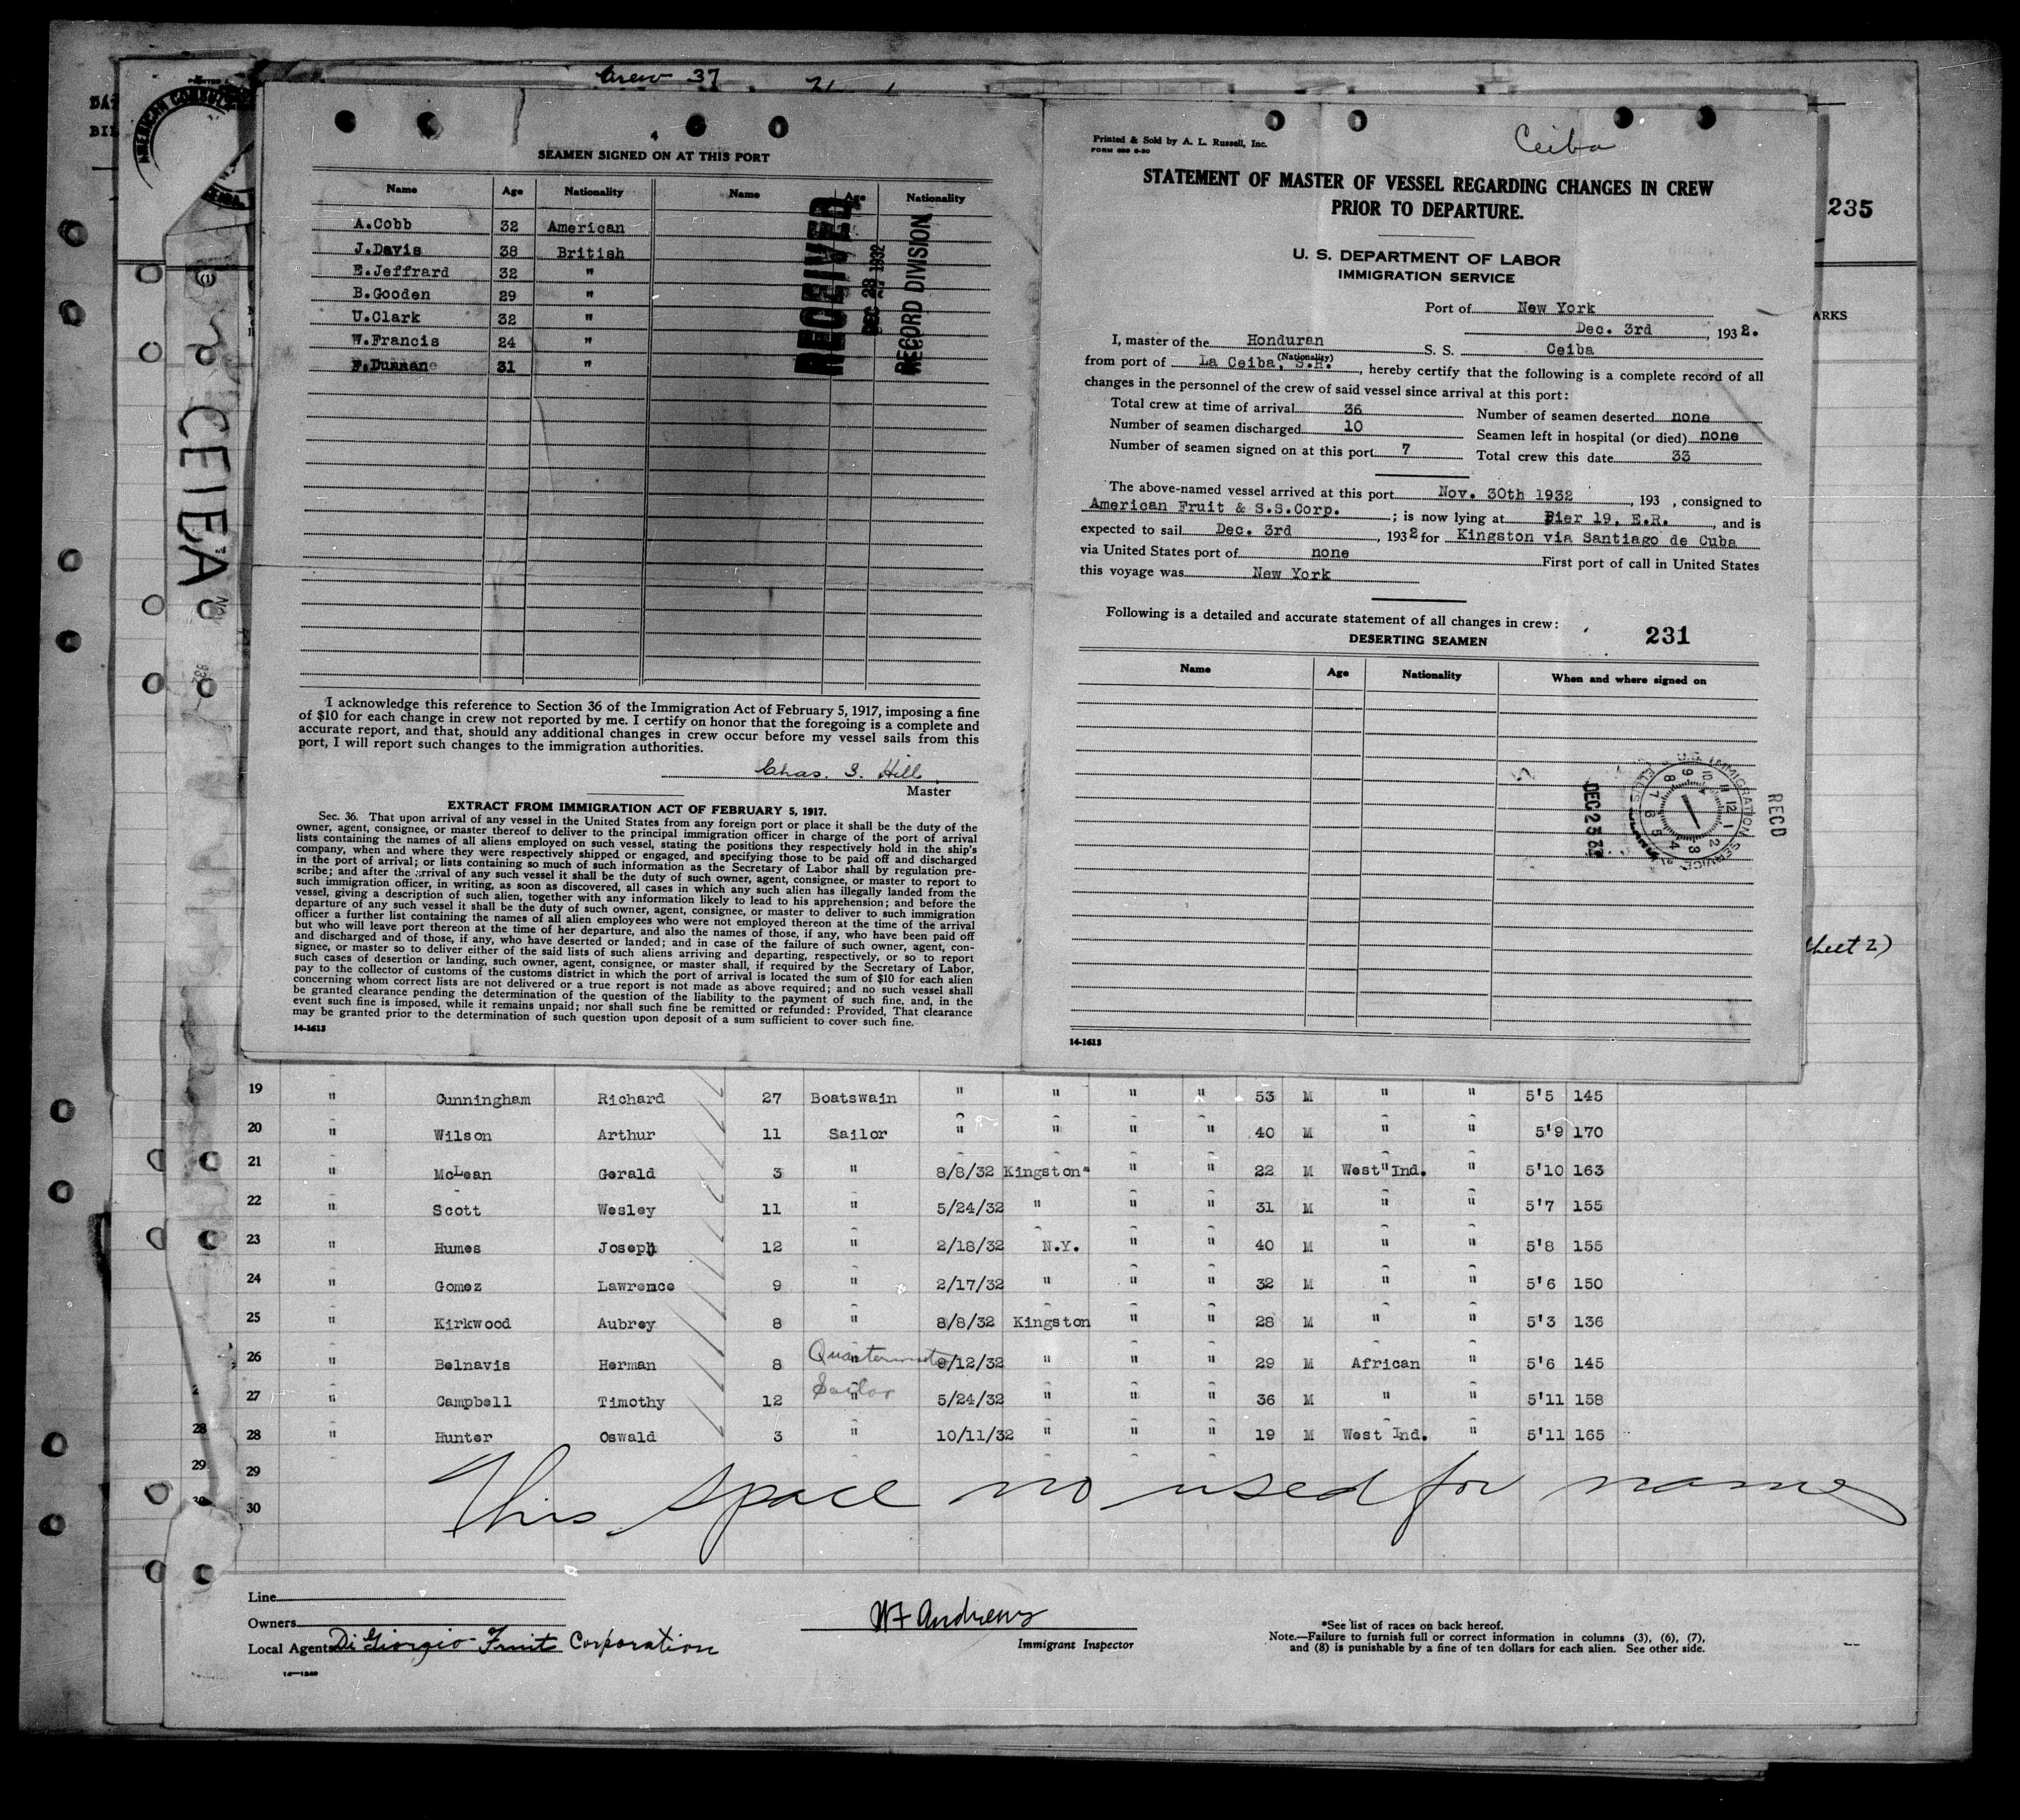 Crew 37
AMERICAN CONSUL
235
ARKS
CEIBA
4
SEAMEN SIGNED ON AT THIS PORT
Name Age Nationality Name Age Nationality
A.Cobb 32 American
J.Davis 38 British
E.Jeffrard 32 "
B.Gooden 29 "
U.Clark 32 "
W.Francis 24 "
31 "
RECEIVED
DEC 28 1932
RECORD DIVISION
I acknowledge this reference to Section 36 of the Immigration Act of February 5, 1917, imposing a fine
of $10 for each change in crew not reported by me. I certify on honor that the foregoing is a complete and
accurate report, and that, should any additional changes in crew occur before my vessel sails from this
port, I will report such changes to the immigration authorities.
Chas. S. Hill
Master
EXTRACT FROM IMMIGRATION ACT OF FEBRUARY 5, 1917.
Sec. 36. That upon arrival of any vessel in the United States from any foreign port or place it shall be the duty of the
owner, agent, consignee, or master thereof to deliver to the principal immigration officer in charge of the port of arrival
lists containing the names of all aliens employed on such vessel, stating the positions they respectively hold in the ship's
company, when and where they were respectively shipped or engaged, and specifying those to be paid off and discharged
in the port of arrival; or lists containing so much of such information as the Secretary of Labor shall by regulation pre-
scribe; and after the arrival of any such vessel it shall be the duty of such owner, agent, consignee, or master to report to
such immigration officer, in writing, as soon as discovered, all cases in which any such alien has illegally landed from the
vessel, giving a description of such alien, together with any information likely to lead to his apprehension; and before the
departure of any such vessel it shall be the duty of such owner, agent, consignee, or master to deliver to such immigration
officer a further list containing the names of all alien employees who were not employed thereon at the time of the arrival
but who will leave port thereon at the time of her departure, and also the names of those, if any, who have been paid off
and discharged and of those, if any, who have deserted or landed; and in case of the failure of such owner, agent, con-
signee, or master so to deliver either of the said lists of such aliens arriving and departing, respectively, or so to report
such cases of desertion or landing, such owner, agent, consignee, or master shall, if required by the Secretary of Labor,
pay to the collector of customs of the customs district in which the port of arrival is located the sum of $10 for each alien
concerning whom correct lists are not delivered or a true report is not made as above required; and no such vessel shall
be granted clearance pending the determination of the question of the liability to the payment of such fine, and, in the
event such fine is imposed, while it remains unpaid; nor shall such fine be remitted or refunded: Provided, That clearance
may be granted prior to the determination of such question upon deposit of a sum sufficient to cover such fine.
14-1613
Printed & Sold by A. L. Russell, Inc.
Ceiba
STATEMENT OF MASTER OF VESSEL REGARDING CHANGES IN CREW
PRIOR TO DEPARTURE.
U. S. DEPARTMENT OF LABOR
IMMIGRATION SERVICE
Port of New York
Dec. 3rd, 1932.
I, master of the Honduran S. S. Ceiba
(Nationality)
from port of La Ceiba, S.H., hereby certify that the following is a complete record of all
changes in the personnel of the crew of said vessel since arrival at this port:
Total crew at time of arrival 36 Number of seamen deserted none
Number of seamen discharged 10 Seamen left in hospital (or died) none
Number of seamen signed on at this port 7 Total crew this date 33
The above-named vessel arrived at this port Nov. 30th 1932, 193 , consigned to
American Fruit & S.S.Corp. ; is now lying at Pier 19, E.R., and is
expected to sail Dec. 3rd, 1932 for Kingston via Santiago de Cuba
via United States port of none First port of call in United States
this voyage was New York
Following is a detailed and accurate statement of all changes in crew:
DESERTING SEAMEN
231
Name Age Nationality When and where signed on
U.S. IMMIGRATION SERVICE
RECD
14-1613
19 " Cunningham Richard 27 Boatswain " " " " 53 M " " 5'5 145
20 " Wilson Arthur 11 Sailor " " " " 40 M " " 5'9 170
21 " McLean Gerald 3 " 8/8/32 Kingston " " 22 M West Ind. " 5'10 163
22 " Scott Wesley 11 " 5/24/32 " " " 31 M " " 5'7 155
23 " Humes Joseph 12 " 2/18/32 N.Y. " " 40 M " " 5'8 155
24 " Gomez Lawrence 9 " 2/17/32 " " " 32 M " " 5'6 150
25 " Kirkwood Aubrey 8 " 8/8/32 Kingston " " 28 M " " 5'3 136
26 " Belnavis Herman 8 Quartermaster /12/32 " " " 29 M African " 5'6 145
27 " Campbell Timothy 12 Sailor 5/24/32 " " " 36 M " " 5'11 158
28 " Hunter Oswald 3 " 10/11/32 " " " 19 M West Ind. " 5'11 165
29
30
This space no used for names
Line
Owners
Local Agents Di Giorgio Fruit Corporation
WF Andrews
Immigrant Inspector
*See list of races on back hereof.
Note.—Failure to furnish full or correct information in columns (3), (6), (7),
and (8) is punishable by a fine of ten dollars for each alien. See other side.